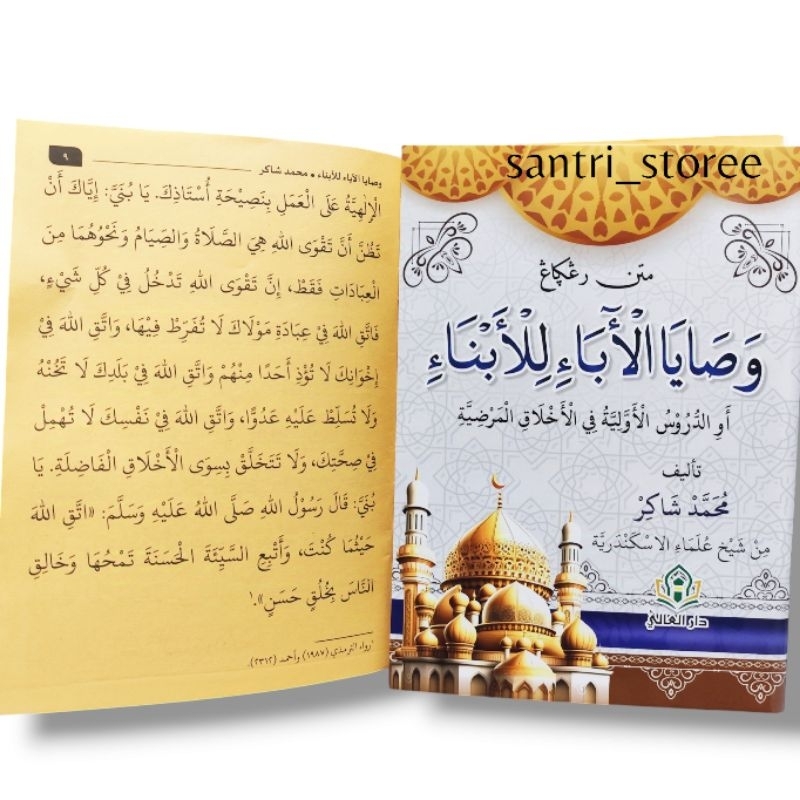 ٩
وصايا الآباء للأبناء • محمد شاكر
الْإِلٰهِيَّةُ عَلَى الْعَمَلِ بِنَصِيْحَةِ أُسْتَاذِكَ. يَا بُنَيَّ: إِيَّاكَ أَنْ
تَظُنَّ أَنَّ تَقْوَى اللهِ هِيَ الصَّلَاةُ وَالصِّيَامُ وَنَحْوُهُمَا مِنَ
الْعِبَادَاتِ فَقَطْ، إِنَّ تَقْوَى اللهِ تَدْخُلُ فِيْ كُلِّ شَيْءٍ،
فَاتَّقِ اللهَ فِيْ عِبَادَةِ مَوْلَاكَ لَا تُفَرِّطْ فِيْهَا، وَاتَّقِ اللهَ فِيْ
إِخْوَانِكَ لَا تُؤْذِ أَحَدًا مِنْهُمْ وَاتَّقِ اللهَ فِيْ بَلَدِكَ لَا تَخُنْهُ
وَلَا تُسَلِّطْ عَلَيْهِ عَدُوًّا، وَاتَّقِ اللهَ فِيْ نَفْسِكَ لَا تُهْمِلْ
فِيْ صِحَّتِكَ، وَلَا تَتَخَلَّقْ بِسِوَى الْأَخْلَاقِ الْفَاضِلَةِ. يَا
بُنَيَّ: قَالَ رَسُوْلُ اللهِ صَلَّى اللهُ عَلَيْهِ وَسَلَّمَ: «اتَّقِ اللهَ
حَيْثُمَا كُنْتَ، وَأَتْبِعِ السَّيِّئَةَ الْحَسَنَةَ تَمْحُهَا وَخَالِقِ
النَّاسَ بِخُلُقٍ حَسَنٍ».١
١ رواه الترمذي (١٩٨٧) وأحمد (٢٣١٢).
santri_storee
متن رڠكڤاڠ
وَصَايَا الْآبَاءِ لِلْأَبْنَاءِ
أَوِ الدُّرُوْسُ الْأَوَّلِيَّةُ فِي الْأَخْلَاقِ الْمَرْضِيَّةِ
تأليف
مُحَمَّدْ شَاكِرْ
مِنْ شَيْخِ عُلَمَاءِ الْاسْكَنْدَرِيَّة
دار الغالي